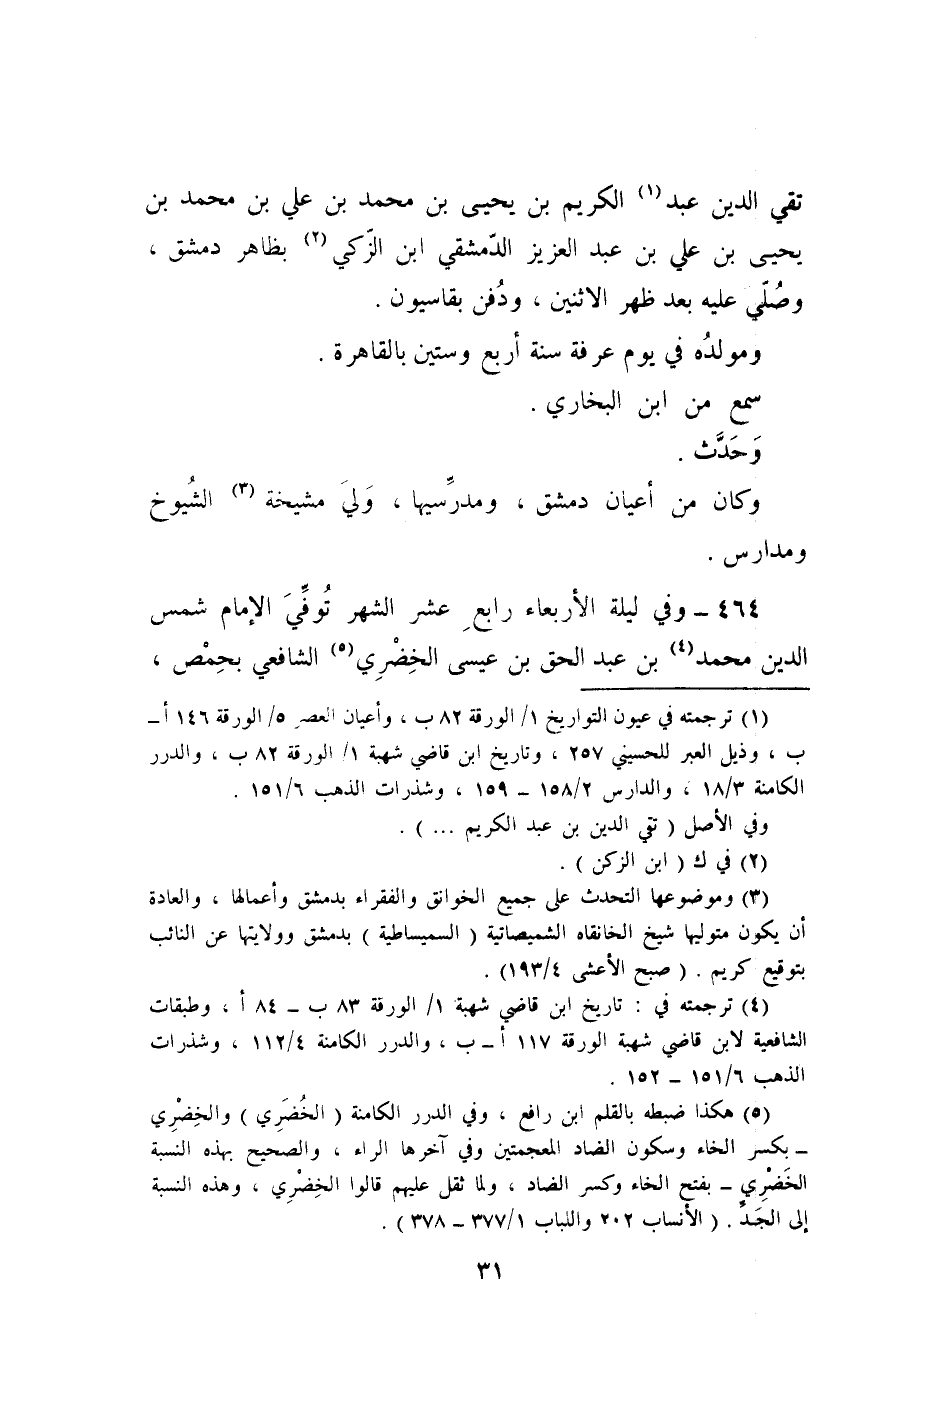 تقي الدين عبد(١) الكريم بن يحيى بن محمد بن علي بن محمد بن
يحيى بن علي بن عبد العزيز الدّمشقي ابن الزّكي(٢) بظاهر دمشق ،
وصُلّي عليه بعد ظهر الاثنين ، ودُفن بقاسيون .
ومولدُه في يوم عرفة سنة أربع وستين بالقاهرة .
سمع من ابن البخاري .
وَحَدَّث .
وكان من أعيان دمشق ، ومدرِّسيها ، وَليَ مشيخة (٣) الشُيوخ
ومدارس .
٤٦٤ ــ وفي ليلة الأربعاء رابعِ عشر الشهر تُوفِّيَ الإمام شمس
الدين محمد(٤) بن عبد الحق بن عيسى الخِضْرِي(٥) الشافعي بحِمْص ،
(١) ترجمته في عيون التواريخ ١/ الورقة ٨٢ ب ، وأعيان العصر ٥/ الورقة ١٤٦ أ ــ
ب ، وذيل العبر للحسيني ٢٥٧ ، وتاريخ ابن قاضي شهبة ١/ الورقة ٨٢ ب ، والدرر
الكامنة ١٨/٣ ، والدارس ١٥٨/٢ ــ ١٥٩ ، وشذرات الذهب ١٥١/٦ .
وفي الأصل ( تقي الدين بن عبد الكريم ... ) .
(٢) في ك ( ابن الزكن ) .
(٣) وموضوعها التحدث على جميع الخوانق والفقراء بدمشق وأعمالها ، والعادة
أن يكون متوليها شيخ الخانقاه الشميصاتية ( السميساطية ) بدمشق وولايتها عن النائب
بتوقيع كريم . ( صبح الأعشى ١٩٣/٤) .
(٤) ترجمته في : تاريخ ابن قاضي شهبة ١/ الورقة ٨٣ ب ــ ٨٤ أ ، وطبقات
الشافعية لابن قاضي شهبة الورقة ١١٧ أ ــ ب ، والدرر الكامنة ١١٢/٤ ، وشذرات
الذهب ١٥١/٦ ــ ١٥٢ .
(٥) هكذا ضبطه بالقلم ابن رافع ، وفي الدرر الكامنة ( الخُضَرِي ) والخِضْرِي
ــ بكسر الخاء وسكون الضاد المعجمتين وفي آخرها الراء ، والصحيح بهذه النسبة
الخَضْرِي ــ بفتح الخاء وكسر الضاد ، ولما ثقل عليهم قالوا الخِضْرِي ، وهذه النسبة
إلى الجَدِّ . ( الأنساب ٢٠٢ واللباب ٣٧٧/١ ــ ٣٧٨ ) .
٣١